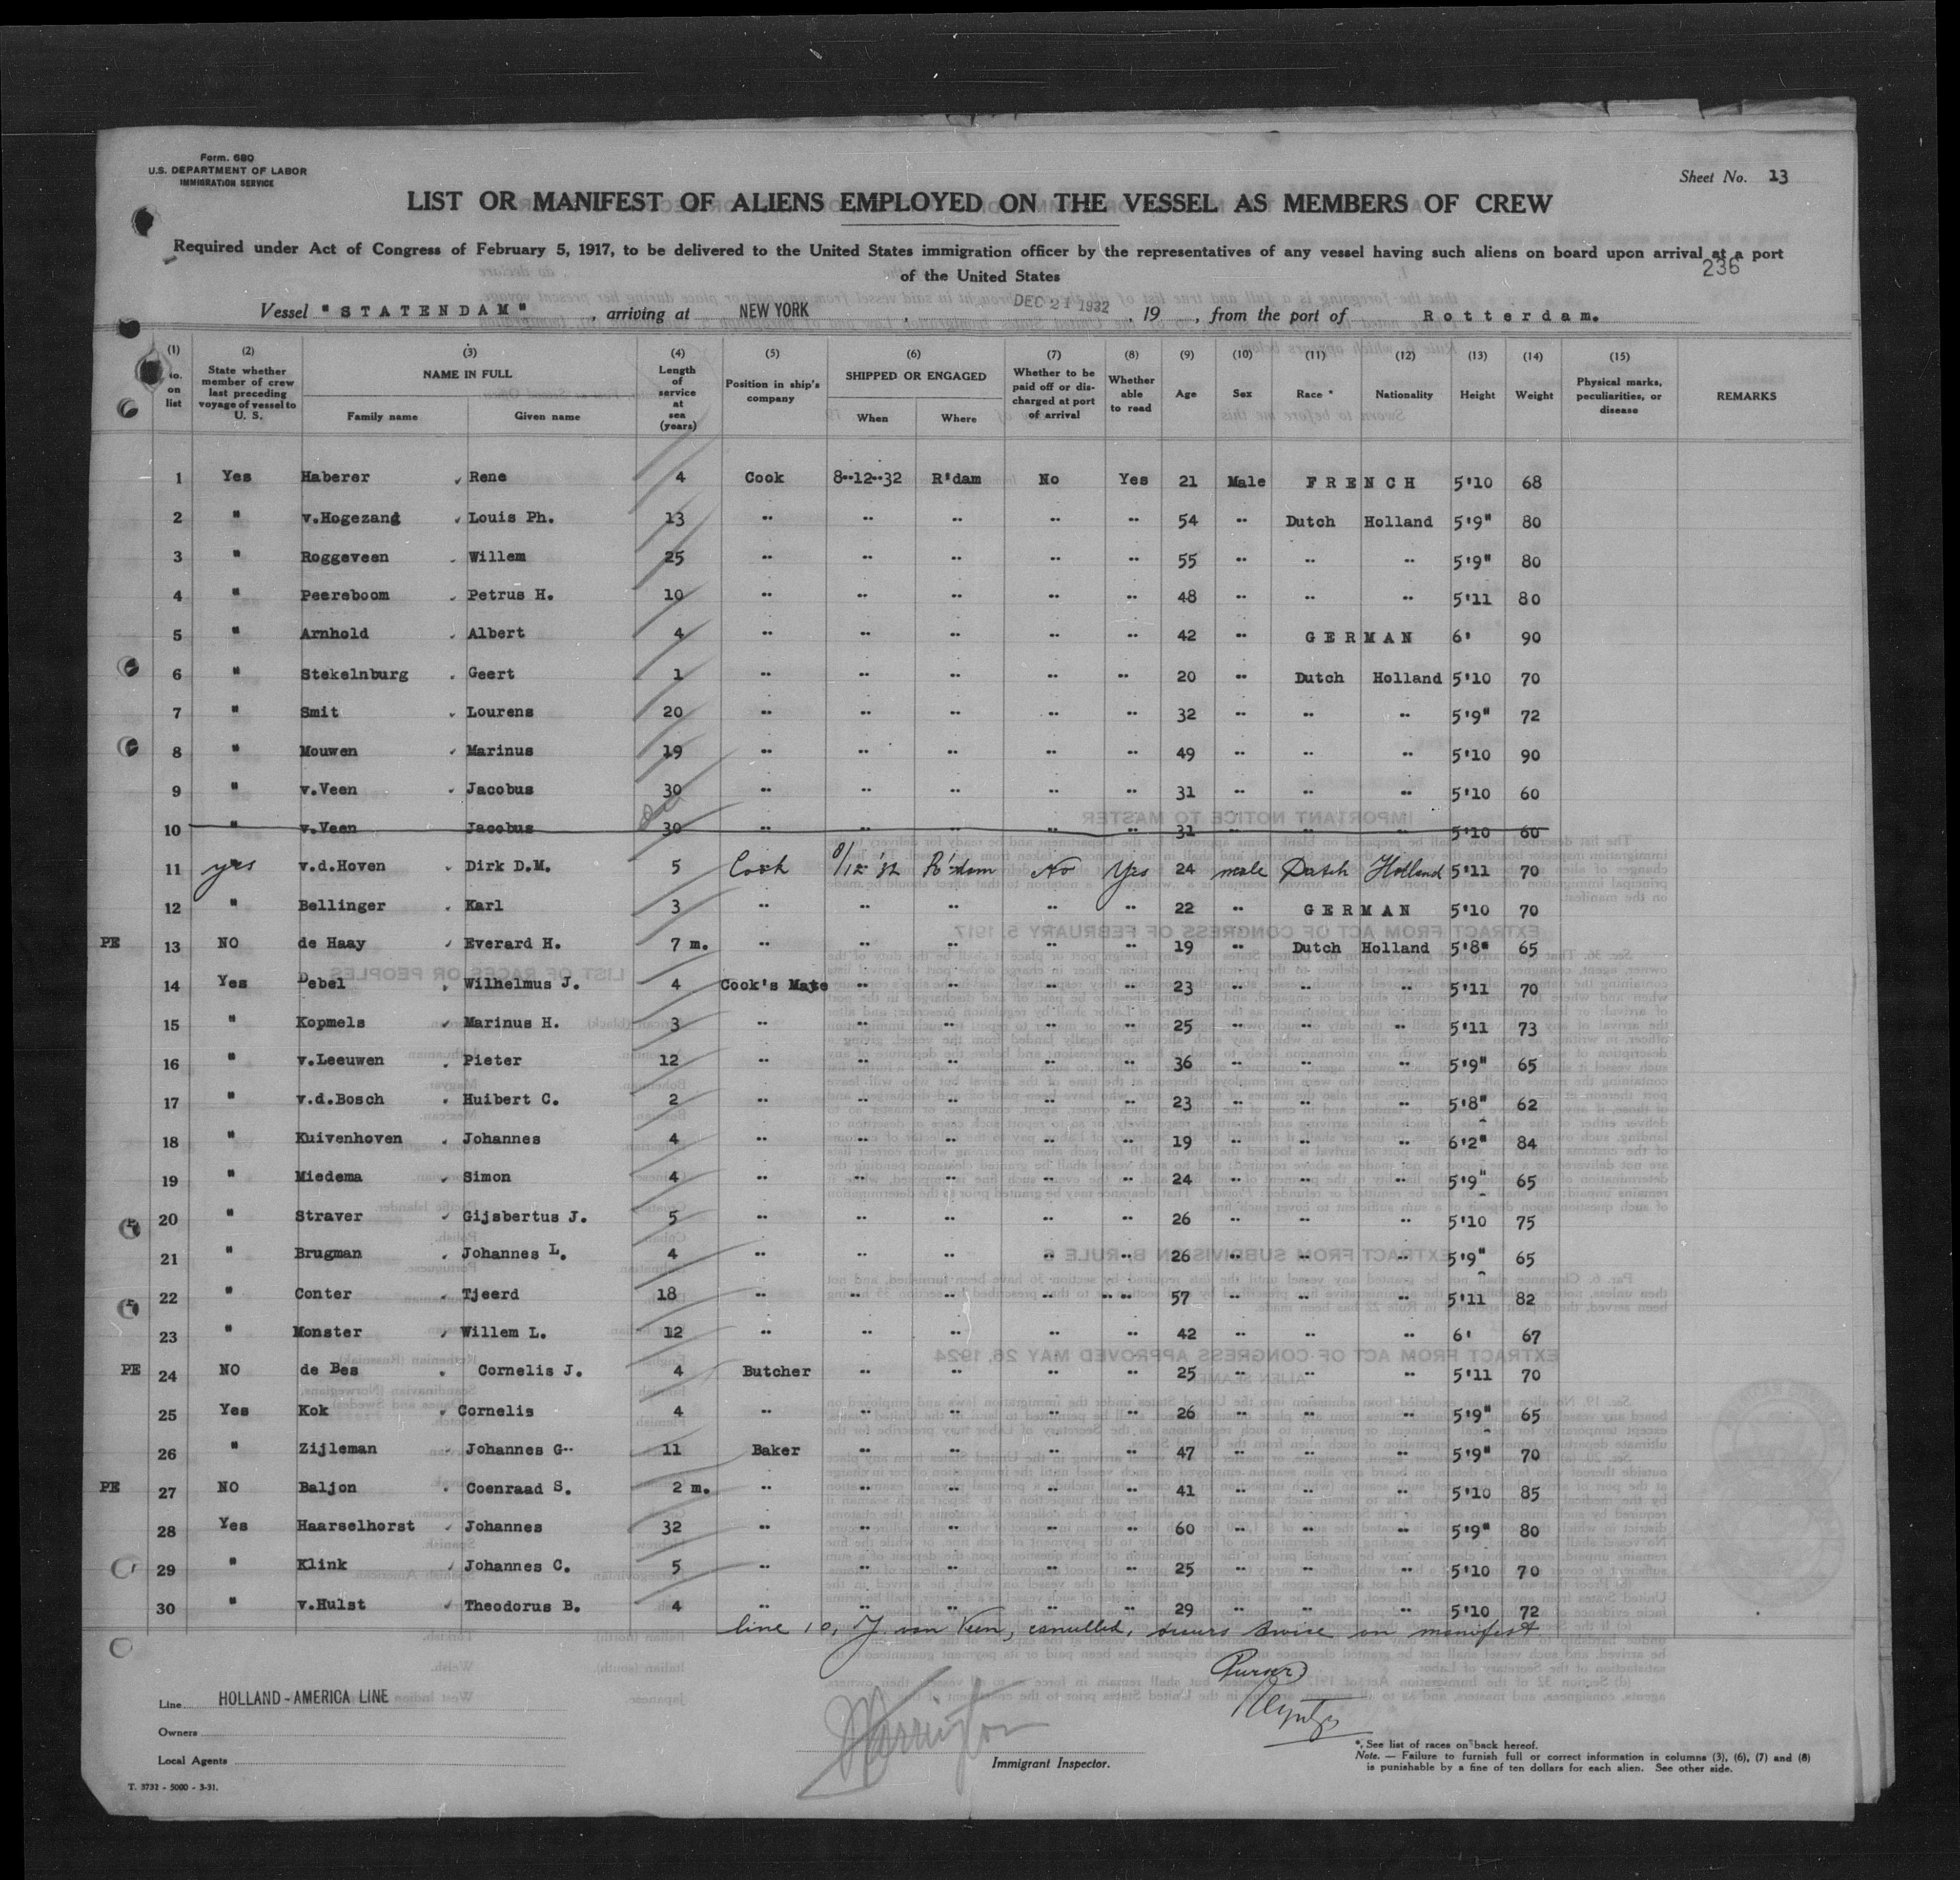 Form. 680
U.S. DEPARTMENT OF LABOR
IMMIGRATION SERVICE
Sheet No. 13
LIST OR MANIFEST OF ALIENS EMPLOYED ON THE VESSEL AS MEMBERS OF CREW
Required under Act of Congress of February 5, 1917, to be delivered to the United States immigration officer by the representatives of any vessel having such aliens on board upon arrival at a port
of the United States
236
Vessel "STATENDAM", arriving at NEW YORK, DEC 21 1932, 19, from the port of Rotterdam.
(1) (2) (3) (4) (5) (6) (7) (8) (9) (10) (11) (12) (13) (14) (15)
No. on list | State whether member of crew last preceding voyage of vessel to U. S. | NAME IN FULL Family name Given name | Length of service at sea (years) | Position in ship's company | SHIPPED OR ENGAGED When Where | Whether to be paid off or discharged at port of arrival | Whether able to read | Age | Sex | Race * | Nationality | Height | Weight | Physical marks, peculiarities, or disease | REMARKS
1 Yes Haberer Rene 4 Cook 8--12--32 R'dam No Yes 21 Male FRENCH 5'10 68
2 " v.Hogezang Louis Ph. 13 -- -- -- -- -- 54 -- Dutch Holland 5'9" 80
3 " Roggeveen Willem 25 -- -- -- -- -- 55 -- -- -- 5'9" 80
4 " Peereboom Petrus H. 10 -- -- -- -- -- 48 -- -- -- 5'11 80
5 " Arnhold Albert 4 -- -- -- -- -- 42 -- GERMAN 6' 90
6 " Stekelnburg Geert 1 -- -- -- -- -- 20 -- Dutch Holland 5'10 70
7 " Smit Lourens 20 -- -- -- -- -- 32 -- -- -- 5'9" 72
8 " Mouwen Marinus 19 -- -- -- -- -- 49 -- -- -- 5'10 90
9 " v.Veen Jacobus 30 -- -- -- -- -- 31 -- -- -- 5'10 60
10 " v.Veen Jacobus 30 -- -- -- -- -- 31 -- -- -- 5'10 60
11 yes v.d.Hoven Dirk D.M. 5 Cook 8/12 '32 R'dam No Yes 24 male Dutch Holland 5'11 70
12 " Bellinger Karl 3 -- -- -- -- -- 22 -- GERMAN 5'10 70
PE 13 NO de Haay Everard H. 7 m. -- -- -- -- -- 19 -- Dutch Holland 5'8" 65
14 Yes Debel Wilhelmus J. 4 Cook's Mate -- -- -- -- 23 -- -- -- 5'11 70
15 " Kopmels Marinus H. 3 -- -- -- -- -- 25 -- -- -- 5'11 73
16 " v.Leeuwen Pieter 12 -- -- -- -- -- 36 -- -- -- 5'9" 65
17 " v.d.Bosch Huibert C. 2 -- -- -- -- -- 23 -- -- -- 5'8" 62
18 " Kuivenhoven Johannes 4 -- -- -- -- -- 19 -- -- -- 6'2" 84
19 " Miedema Simon 4 -- -- -- -- -- 24 -- -- -- 5'9" 65
20 " Straver Gijsbertus J. 5 -- -- -- -- -- 26 -- -- -- 5'10 75
21 " Brugman Johannes L. 4 -- -- -- -- -- 26 -- -- -- 5'9" 65
22 " Conter Tjeerd 18 -- -- -- -- -- 57 -- -- -- 5'11 82
23 " Monster Willem L. 12 -- -- -- -- -- 42 -- -- -- 6' 67
PE 24 NO de Bes Cornelis J. 4 Butcher -- -- -- -- 25 -- -- -- 5'11 70
25 Yes Kok Cornelis 4 -- -- -- -- -- 26 -- -- -- 5'9" 65
26 " Zijleman Johannes G-- 11 Baker -- -- -- -- 47 -- -- -- 5'9" 70
PE 27 NO Baljon Coenraad S. 2 m. -- -- -- -- -- 41 -- -- -- 5'10 85
28 Yes Haarselhorst Johannes 32 -- -- -- -- -- 60 -- -- -- 5'9" 80
29 " Klink Johannes C. 5 -- -- -- -- -- 25 -- -- -- 5'10 70
30 " v.Hulst Theodorus B. 4 -- -- -- -- -- 29 -- -- -- 5'10 72
line 10, J. van Veen, cancelled, occurs twice on manifest
Purser
Line HOLLAND-AMERICA LINE
Owners
Local Agents
Immigrant Inspector.
*, See list of races on back hereof.
Note. — Failure to furnish full or correct information in columns (3), (6), (7) and (8)
is punishable by a fine of ten dollars for each alien. See other side.
T. 3732 - 5000 - 3-31.